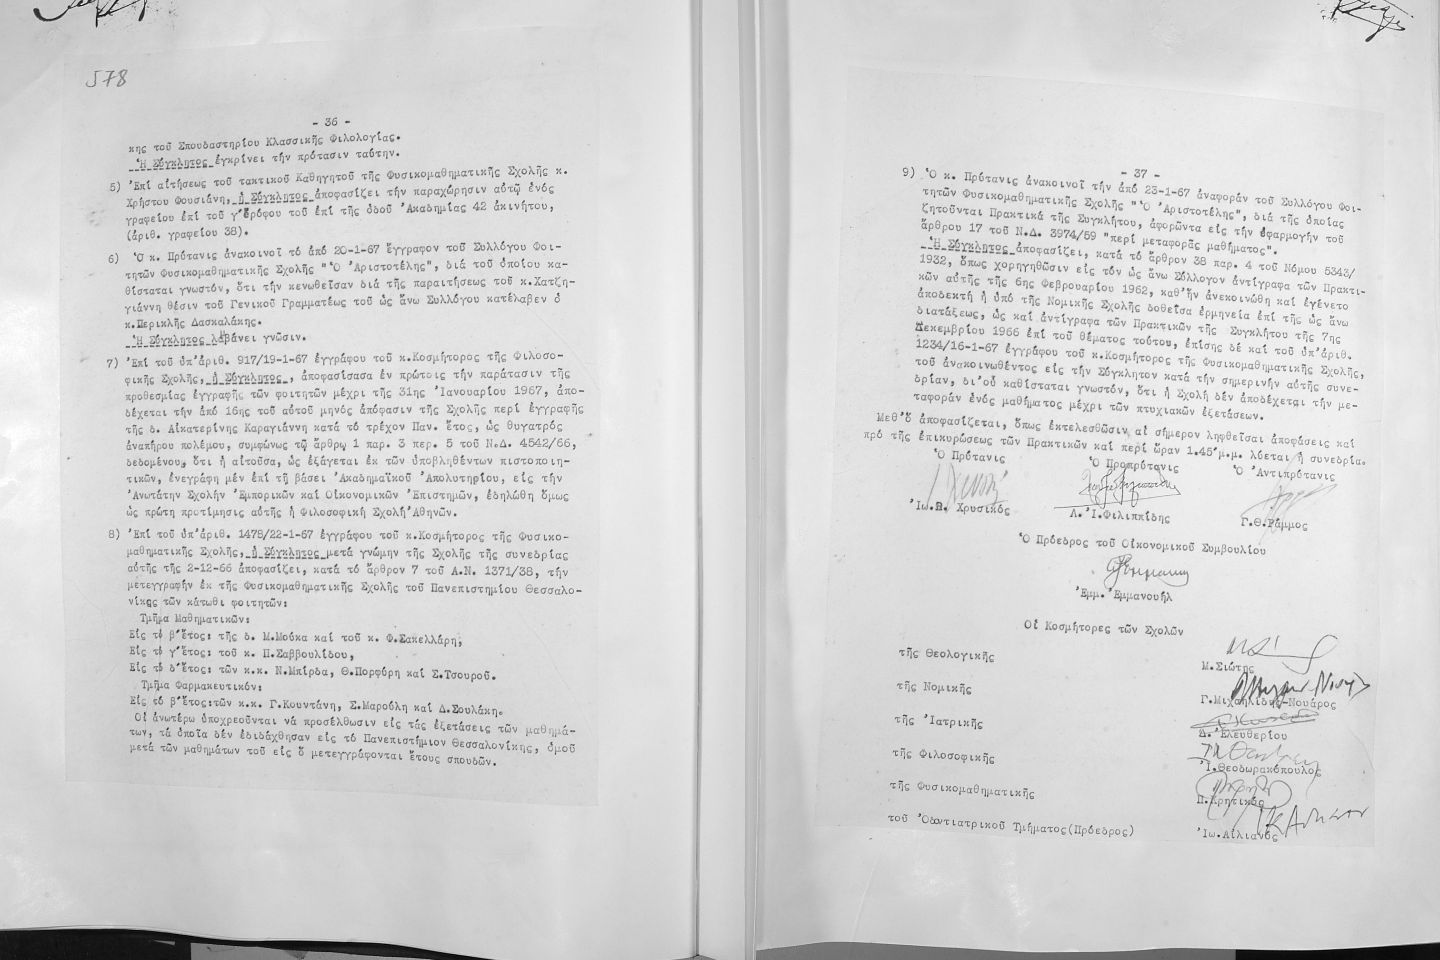 578
- 36 -
κης τοῦ Σπουδαστηρίου Κλασσικῆς Φιλολογίας.
Ἡ Σύγκλητος ἐγκρίνει τήν πρότασιν ταύτην.
5) Ἐπί αἰτήσεως τοῦ τακτικοῦ Καθηγητοῦ τῆς Φυσικομαθηματικῆς Σχολῆς κ.
Χρήστου Φουσιάνη, ἡ Σύγκλητος ἀποφασίζει τήν παραχώρησιν αὐτῷ ἑνός
γραφείου ἐπί τοῦ γ΄ὀρόφου τοῦ ἐπί τῆς ὁδοῦ Ἀκαδημίας 42 ἀκινήτου,
(ἀριθ. γραφείου 38).
6) Ὁ κ. Πρύτανις ἀνακοινοῖ τό ἀπό 20-1-67 ἔγγραφον τοῦ Συλλόγου Φοι-
τητῶν Φυσικομαθηματικῆς Σχολῆς "Ὁ Ἀριστοτέλης", διά τοῦ ὁποίου κα-
θίσταται γνωστόν, ὅτι τήν κενωθεῖσαν διά τῆς παραιτήσεως τοῦ κ.Χατζη-
γιάννη θέσιν τοῦ Γενικοῦ Γραμματέως τοῦ ὡς ἄνω Συλλόγου κατέλαβεν ὁ
κ.Περικλῆς Δασκαλάκης.
Ἡ Σύγκλητος λαμβάνει γνῶσιν.
7) Ἐπί τοῦ ὑπ΄ἀριθ. 917/19-1-67 ἐγγράφου τοῦ κ.Κοσμήτορος τῆς Φιλοσο-
φικῆς Σχολῆς, ἡ Σύγκλητος, ἀποφασίσασα ἐν πρώτοις τήν παράτασιν τῆς
προθεσμίας ἐγγραφῆς τῶν φοιτητῶν μέχρι τῆς 31ης Ἰανουαρίου 1967, ἀπο-
δέχεται τήν ἀπό 16ης τοῦ αὐτοῦ μηνός ἀπόφασιν τῆς Σχολῆς περί ἐγγραφῆς
τῆς δ. Αἰκατερίνης Καραγιάννη κατά τό τρέχον Παν. ἔτος, ὡς θυγατρός
ἀναπήρου πολέμου, συμφώνως τῷ ἄρθρῳ 1 παρ. 3 περ. 5 τοῦ Ν.Δ. 4542/66,
δεδομένου, ὅτι ἡ αἰτοῦσα, ὡς ἐξάγεται ἐκ τῶν ὑποβληθέντων πιστοποιη-
τικῶν, ἐνεγράφη μέν ἐπί τῇ βάσει Ἀκαδημαϊκοῦ Ἀπολυτηρίου, εἰς τήν
Ἀνωτάτην Σχολήν Ἐμπορικῶν καί Οἰκονομικῶν Ἐπιστημῶν, ἐδηλώθη ὅμως
ὡς πρώτη προτίμησις αὐτῆς ἡ Φιλοσοφική Σχολή Ἀθηνῶν.
8) Ἐπί τοῦ ὑπ΄ἀριθ. 1478/22-1-67 ἐγγράφου τοῦ κ.Κοσμήτορος τῆς Φυσικο-
μαθηματικῆς Σχολῆς, ἡ Σύγκλητος μετά γνώμην τῆς Σχολῆς τῆς συνεδρίας
αὐτῆς τῆς 2-12-66 ἀποφασίζει, κατά τό ἄρθρον 7 τοῦ Α.Ν. 1371/38, τήν
μετεγγραφήν ἐκ τῆς Φυσικομαθηματικῆς Σχολῆς τοῦ Πανεπιστημίου Θεσσαλο-
νίκης τῶν κάτωθι φοιτητῶν:
Τμῆμα Μαθηματικῶν:
Εἰς τό β΄ἔτος: τῆς δ. Μ.Μούκα καί τοῦ κ. Φ.Σακελλάρη,
Εἰς τό γ΄ἔτος: τοῦ κ. Π.Σαββουλίδου,
Εἰς τό δ΄ἔτος: τῶν κ.κ. Ν.Μπίρδα, Θ.Πορφύρη καί Σ.Τσουροῦ.
Τμῆμα Φαρμακευτικόν:
Εἰς τό β΄ἔτος:τῶν κ.κ. Γ.Κουντάνη, Σ.Μαρούλη καί Δ.Σουλάκη.
Οἱ ἀνωτέρω ὑποχρεοῦνται νά προσέλθωσιν εἰς τάς ἐξετάσεις τῶν μαθημά-
των, τά ὁποῖα δέν ἐδιδάχθησαν εἰς τό Πανεπιστήμιον Θεσσαλονίκης, ὁμοῦ
μετά τῶν μαθημάτων τοῦ εἰς ὅ μετεγγράφονται ἔτους σπουδῶν.
- 37 -
9) Ὁ κ. Πρύτανις ἀνακοινοῖ τήν ἀπό 23-1-67 ἀναφοράν τοῦ Συλλόγου Φοι-
τητῶν Φυσικομαθηματικῆς Σχολῆς "Ὁ Ἀριστοτέλης", διά τῆς ὁποίας
ζητοῦνται Πρακτικά τῆς Συγκλήτου, ἀφορῶντα εἰς τήν ἐφαρμογήν τοῦ
ἄρθρου 17 τοῦ Ν.Δ. 3974/59 "περί μεταφορᾶς μαθήματος".
Ἡ Σύγκλητος ἀποφασίζει, κατά τό ἄρθρον 38 παρ. 4 τοῦ Νόμου 5343/
1932, ὅπως χορηγηθῶσιν εἰς τόν ὡς ἄνω Σύλλογον ἀντίγραφα τῶν Πρακτι-
κῶν αὐτῆς τῆς 6ης Φεβρουαρίου 1962, καθ΄ἥν ἀνεκοινώθη καί ἐγένετο
ἀποδεκτή ἡ ὑπό τῆς Νομικῆς Σχολῆς δοθεῖσα ἑρμηνεία ἐπί τῆς ὡς ἄνω
διατάξεως, ὡς καί ἀντίγραφα τῶν Πρακτικῶν τῆς Συγκλήτου τῆς 7ης
Δεκεμβρίου 1966 ἐπί τοῦ θέματος τούτου, ἐπίσης δέ καί τοῦ ὑπ΄ἀριθ.
1234/16-1-67 ἐγγράφου τοῦ κ.Κοσμήτορος τῆς Φυσικομαθηματικῆς Σχολῆς,
τοῦ ἀνακοινωθέντος εἰς τήν Σύγκλητον κατά τήν σημερινήν αὐτῆς συνε-
δρίαν, δι΄οὗ καθίσταται γνωστόν, ὅτι ἡ Σχολή δέν ἀποδέχεται τήν με-
ταφοράν ἑνός μαθήματος μέχρι τῶν πτυχιακῶν ἐξετάσεων.
Μεθ΄ὅ ἀποφασίζεται, ὅπως ἐκτελεσθῶσιν αἱ σήμερον ληφθεῖσαι ἀποφάσεις καί
πρό τῆς ἐπικυρώσεως τῶν Πρακτικῶν καί περί ὥραν 1.45΄μ.μ. λύεται ἡ συνεδρία.
Ὁ Πρύτανις Ὁ Προπρύτανις Ὁ Ἀντιπρύτανις
Ἰω.Θ. Χρυσικός Λ.Ἰ.Φιλιππίδης Γ.Θ.Ράμμος
Ὁ Πρόεδρος τοῦ Οἰκονομικοῦ Συμβουλίου
Ἐμμ. Ἐμμανουήλ
Οἱ Κοσμήτορες τῶν Σχολῶν
τῆς Θεολογικῆς Μ.Σιώτης
τῆς Νομικῆς Γ.Μιχαηλίδης-Νουάρος
τῆς Ἰατρικῆς Δ.Ἐλευθερίου
τῆς Φιλοσοφικῆς Ἰ.Θεοδωρακόπουλος
τῆς Φυσικομαθηματικῆς Π.Κρητικός
τοῦ Ὀδοντιατρικοῦ Τμήματος(Πρόεδρος) Ἰω.Αἰλιανός